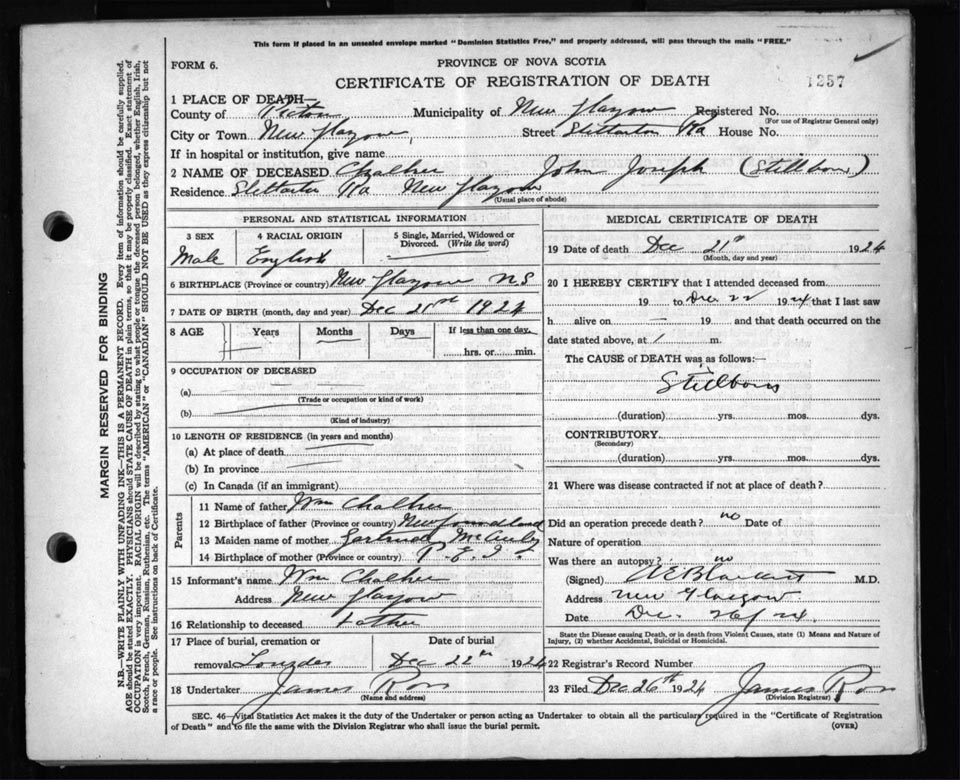 This form if placed in an unsealed envelope marked "Dominion Statistics Free," and properly addressed, will pass through the mails "FREE."
FORM 6.
PROVINCE OF NOVA SCOTIA
CERTIFICATE OF REGISTRATION OF DEATH
1257
1 PLACE OF DEATH—
County of Pictou Municipality of New Glasgow Registered No.
(For use of Registrar General only)
City or Town New Glasgow, Street Stellarton Rd House No.
If in hospital or institution, give name
2 NAME OF DECEASED John Joseph (Stillborn)
Residence Stellarton Rd New Glasgow
(Usual place of abode)
PERSONAL AND STATISTICAL INFORMATION
3 SEX
Male
4 RACIAL ORIGIN
English
5 Single, Married, Widowed or Divorced. (Write the word)
6 BIRTHPLACE (Province or country) New Glasgow N S
7 DATE OF BIRTH (month, day and year) Dec 21st 1924
8 AGE Years Months Days If less than one day,
hrs. or min.
9 OCCUPATION OF DECEASED
(a)
(Trade or occupation or kind of work)
(b)
(Kind of industry)
10 LENGTH OF RESIDENCE (in years and months)
(a) At place of death
(b) In province
(c) In Canada (if an immigrant)
Parents
11 Name of father Wm
12 Birthplace of father (Province or country) Newfoundland
13 Maiden name of mother Gertrude
14 Birthplace of mother (Province or country) P. E. I.
15 Informant's name Wm
Address New Glasgow
16 Relationship to deceased Father
17 Place of burial, cremation or Date of burial
removal Dec 22nd 1924
18 Undertaker James Ross
(Name and address)
MEDICAL CERTIFICATE OF DEATH
19 Date of death Dec 21st 1924
(Month, day and year)
20 I HEREBY CERTIFY that I attended deceased from
19 to Dec 22 1924 that I last saw
h alive on — 19 and that death occurred on the
date stated above, at m.
The CAUSE of DEATH was as follows:—
Stillborn
(duration) yrs. mos. dys.
CONTRIBUTORY
(Secondary)
(duration) yrs. mos. dys.
21 Where was disease contracted if not at place of death?
Did an operation precede death? no Date of
Nature of operation
Was there an autopsy? no
(Signed) M.D.
Address New Glasgow
Date Dec.
State the Disease causing Death, or in death from Violent Causes, state (1) Means and Nature of
Injury, (2) whether Accidental, Suicidal or Homicidal.
22 Registrar's Record Number
23 Filed Dec 26th 1924 James Ross
(Division Registrar)
SEC. 46—Vital Statistics Act makes it the duty of the Undertaker or person acting as Undertaker to obtain all the particulars required in the "Certificate of Registration
of Death" and to file the same with the Division Registrar who shall issue the burial permit.
(OVER)
MARGIN RESERVED FOR BINDING
N.B.—WRITE PLAINLY WITH UNFADING INK—THIS IS A PERMANENT RECORD. Every item of information should be carefully supplied.
AGE should be stated EXACTLY. PHYSICIANS should STATE CAUSE OF DEATH in plain terms, so that it may be properly classified. Exact statement of
OCCUPATION is very important. RACIAL ORIGIN will be described by stating to what people or tongue the deceased person belonged, whether English, Irish,
Scotch, French, German, Russian, Ruthenian, etc. The terms "AMERICAN" or "CANADIAN" SHOULD NOT BE USED as they express citizenship but not
a race or people. See instructions on back of Certificate.